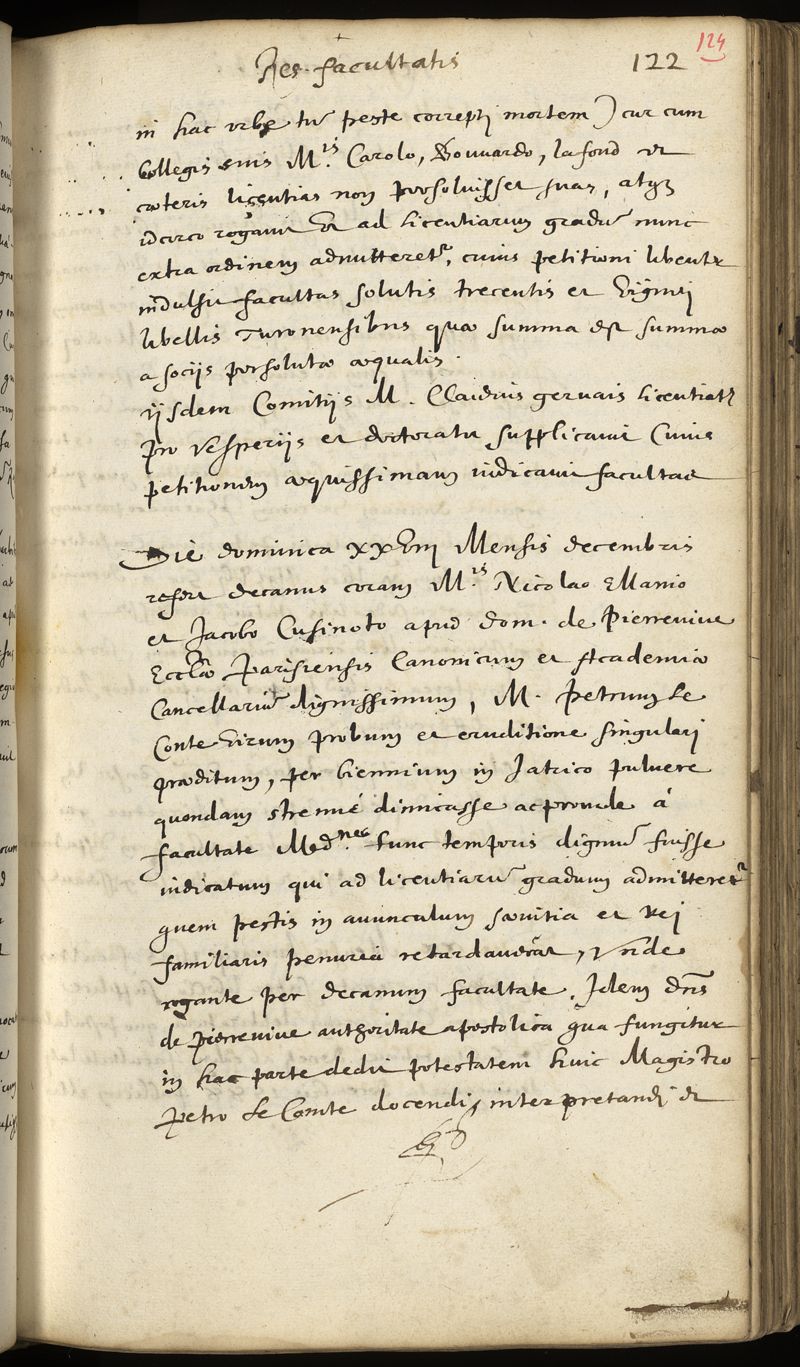 Res facultatis
122
124
in hac urbe tū peste correpti mortem) cur cum
Collegis suis M.is Carolo, Bouuardo, lafond et
cæteris licentias non persoluisset suas, atq3
idcirco rogauit ut ad licentiarum gradū nunc
extra ordinem admitteretr, cuius petitioni libentr
indulsit facultas solutis trecentis et viginti
libellis Turonensibus quæ summa est summæ
a socijs persolutæ æqualis.
ijsdem Comitijs M. Claudius geruais licentiats
pro vesperijs et doctoratu supplicauit Cuius
petitionem æquissimam iudicauit facultas
Die dominica xxvm Mensis decembris
refert decanus coram M.is Nicolao Ellanio
et Jacobo Cusinoto apud dom. de Pierreuiue
Eccłæ Parisiensis Canonicum et Academiæ
Cancellariū dignissimum, M. Petrum Le
Conte virum probum et eruditione singulari
præditum, per biennium in Iatrico puluere
quondam strenuè dimicasse ac proinde à
facultate Med.nes tunc temporis dignū fuisse
iudicatum qui ad licentiarū gradum admitteretr
quem pestis in auunculum sæuitia et rei
familiaris penuria retardauerat, vnde
rogante per decanum facultate. Idem dn̄s
de pierreuiue authoritate apostolica qua fungitur
in hac parte dedit potestatem huic Magistro
Petro Le Comte docendi, interpretandi et